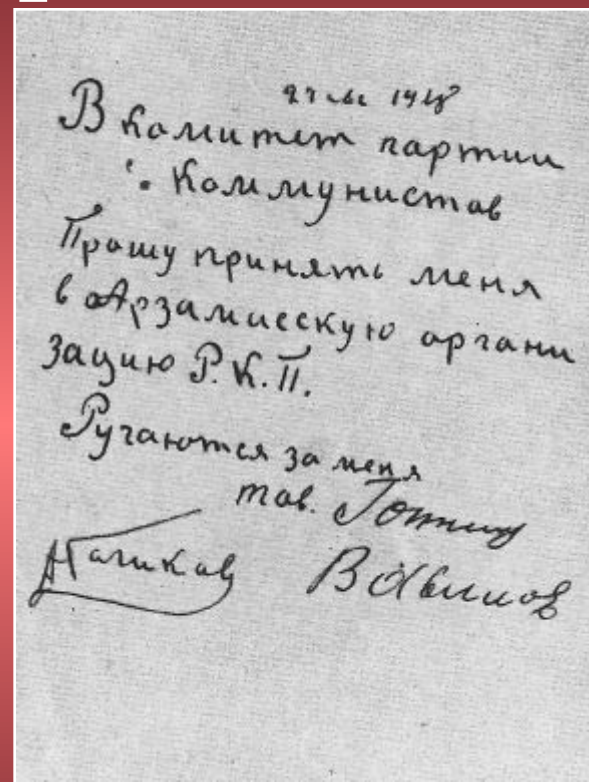 В Комитет партии
Коммунистов
Прошу принять меня
в Арзамасскую органи
зацию Р.К.П.
Ручаются за меня
тов.
АГоликов Вавилов